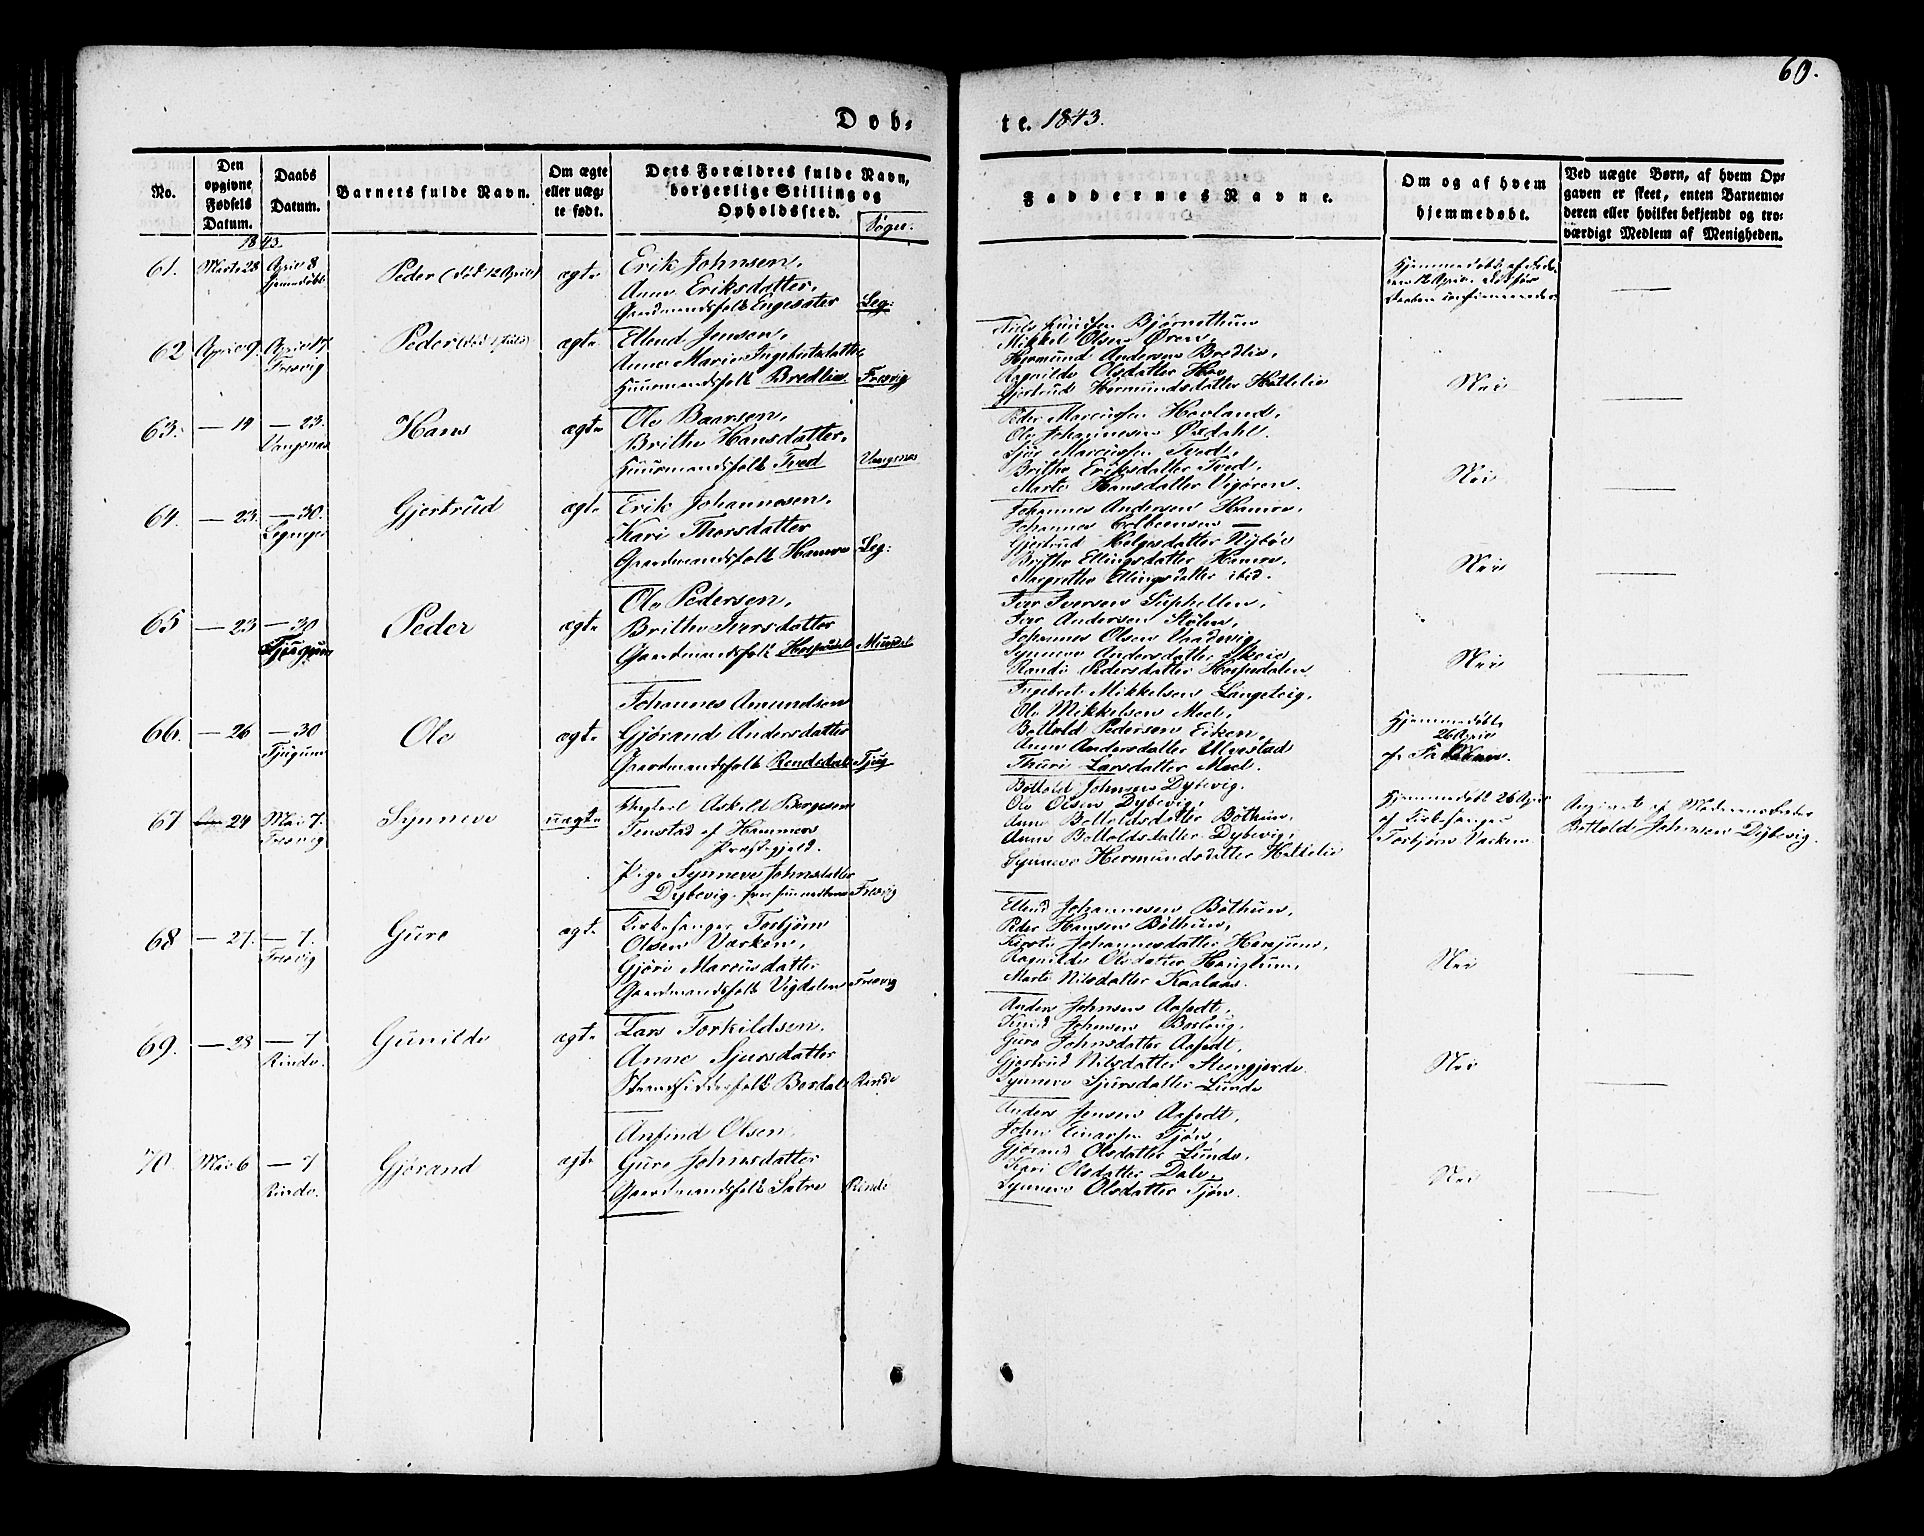 60.
Døb-
te. 1843.
No.
Den opgivne Fødsels Datum.
Daabs Datum.
Barnets fulde Navn.
Om ægte eller uæg-te født.
Dets Forældres fulde Navn, borgerlige Stilling og Opholdssted.
Sogn:
Faddernes Navne.
Om og af hvem hjemmedøbt.
Ved uægte Børn, af hvem Op-
gaven er skeet, enten Barnemo-
deren eller hvilket bekjendt og tro-
værdigt Medlem af Menigheden.
1843.
61. Marts 28 April 8 Peder (død 12 April) ægte Erik Johnsen,
Anne Eriksdatter,
Gaardmandsfolk Engesæter Leg:
Hjemmedøbt
62 April 9. April 17. Peder ægte Ellend Jensen,
Fresvig
Anne Marie Ingebrigtsdatter
Huusmandsfolk Bredlien Fresvig
Niels Knudsen Bjørnethun
Mikkel Olsen Øren,
Hermund Andersen Bredlie,
Ragnilde Olsdatter Hov
Gjertrud Hermundsdatter Hatlelie
Nei
63. — 14 — 23. Hans ægte Ole Baarsen,
Vangsnæs
Brithe Hansdatter,
Huusmandsfolk Tved Vangsnæs
Peder Marcussen Hovland,
Ole Johannesen Øxdahl.
Sjur Marcussen Tved,
Brithe Eriksdatter Tved,
Marte Hansdatter Vigøren.
Nei
64. — 23. — 30. Gjertrud ægte Erik Johannesen,
Kari Thorsdatter
Gaardmandsfolk Hamre Leg:
Johannes Andersen Hamre,
Johannes Colbeensen —
Gjertrud Helgesdatter Nybøe
Brithe Ellingsdatter Hamre,
Margrethe Ellingsdatter ibid.
Nei
65 — 23 — 30 Peder ægte Ole Pedersen,
Tjugum
Brithe Iversdatter
Gaardmandsfolk Mundal
Iver Iversen Suphellen,
Iver Andersen Støhn,
Johannes Olsen
Synneve Andersdatter Skeie
Randi Pedersdatter Harpedalen
Nei
66. — 26 — 30 Ole ægte Johannes Amundsen
Tjugum
Gjørand Andersdatter
Gaardmandsfolk Rendedal Tjug
Ingebret Mikkelsen Langeteig,
Ole Mikkelsen Meel,
Botold Pedersen Eiken,
Anne Andersdatter Ulvestad
Thuri Larsdatter Meel.
Hjemmedøbt
26 April
af
67 — 24 Mai 7. Synneve uægte Ungkarl Askild Børgesen
Fresvig
Tenstad af Hammers
Præstegjeld.
Pige Synneve Johnsdatter
Dybevig. Fresvig
Botold Johnsen Dybevig.
Ole Olsen Dybevig,
Anne Botoldsdatter Bøthun,
Anne Botoldsdatter Dybevig,
Synneve Hermundsdatter Hatlelie
Hjemmedøbt 26 April
af Kirkesanger
Torbjørn Varken
Angivet af Moderens Fader
Botold Johnsen Dybevig.
68 — 27. — 7. Gure ægte Kirkesanger Torbjørn
Fresvig
Olsen Varken,
Gjøri Marcusdatter
Gaardmandsfolk Vigdalen Fresvig
Ellend Johannesen Bøthun,
Peder Hansen Bøthun,
Kirsti Johannesdatter
Ragnilde Olsdatter
Marte Nilsdatter
Nei
69. — 28 — 7 Gunilde ægte Lars Torkildsen,
Rinde.
Anne Sjursdatter
Strandsidderfolk Bordal Rinde
Anders Johnsen Aafedt,
Knud Johnsen
Gure Johnsdatter Aafedt,
Gjertrud Nilsdatter Steengjerde
Synneve Sjursdatter Lunde
Nei
70. Mai 6 — 7 Gjørand ægte Anfind Olsen,
Rinde.
Gure Johnsdatter
Gaardmandsfolk Sætre Rinde
Anders Jensen Aafedt,
John Einarsen Tjøn,
Gjørand Olsdatter Lunde,
Kari Olsdatter Dale,
Synneve Olsdatter Tjøn.
Nei